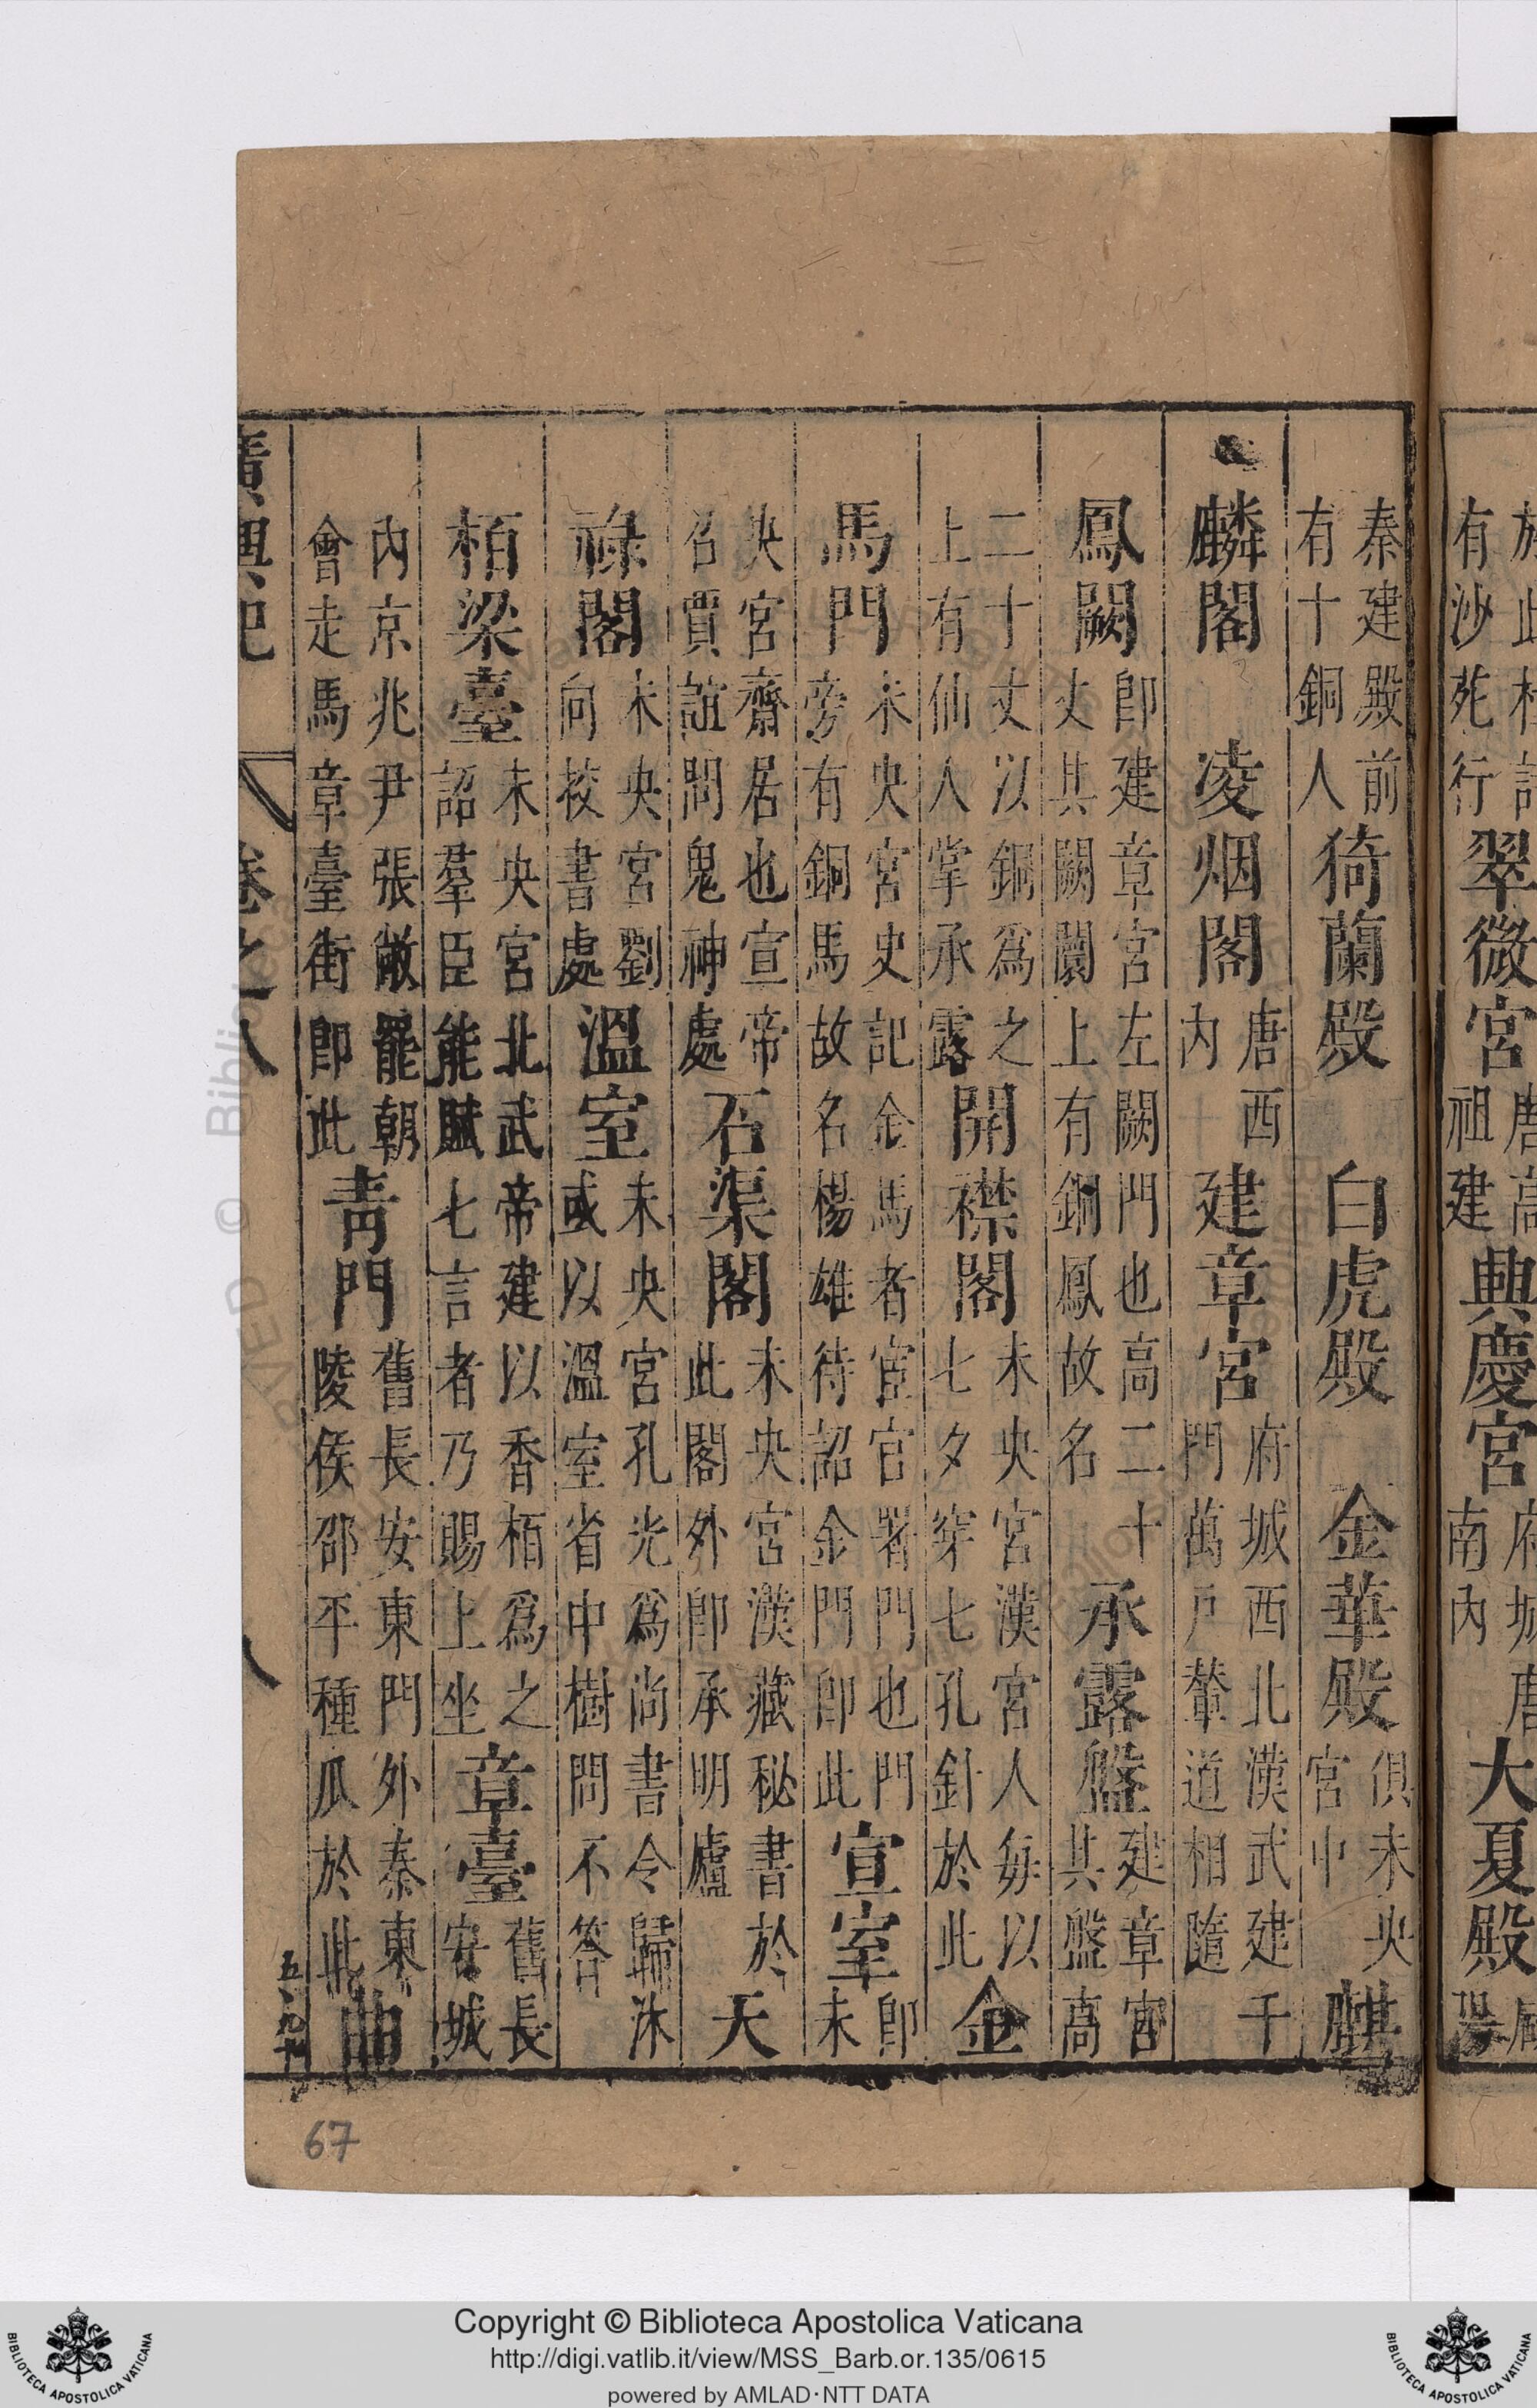 有沙苑行 翠微宮 唐高祖建 興慶宮 府城唐南內 大夏殿
秦建殿前有十銅人 猗蘭殿 白虎殿 金華殿 俱未央宮中 麒
麟閣 凌烟閣 唐西內 建章宮 府城西北漢武建千門萬戶輦道相隨
鳳闕 卽建章宮左闕門也高二十丈其闕闤上有銅鳳故名 承露盤 建章宮其盤高
二十丈以銅爲之上有仙人掌承露 開襟閣 未央宮漢宮人每以七夕穿七孔針於此 金
馬門 未央宮史記金馬者宦官署門也門旁有銅馬故名楊雄待詔金門卽此 宣室 卽未
央宮齋居也宣帝召賈誼問鬼神處 石渠閣 未央宮漢藏秘書於此閣外卽承明廬 天
祿閣 未央宮劉向校書處 溫室 未央宮孔光爲尚書令歸沐或以溫室省中樹問不答
栢梁臺 未央宮北武帝建以香栢爲之詔羣臣能賦七言者乃賜上坐 章臺 舊長安城
內京兆尹張敞罷朝會走馬章臺街卽此 靑門 舊長安東門外秦東陵侯邵平種瓜於此 曲
廣輿記 卷之八 八
67
Copyright © Biblioteca Apostolica Vaticana
http://digi.vatlib.it/view/MSS_Barb.or.135/0615
powered by AMLAD·NTT DATA